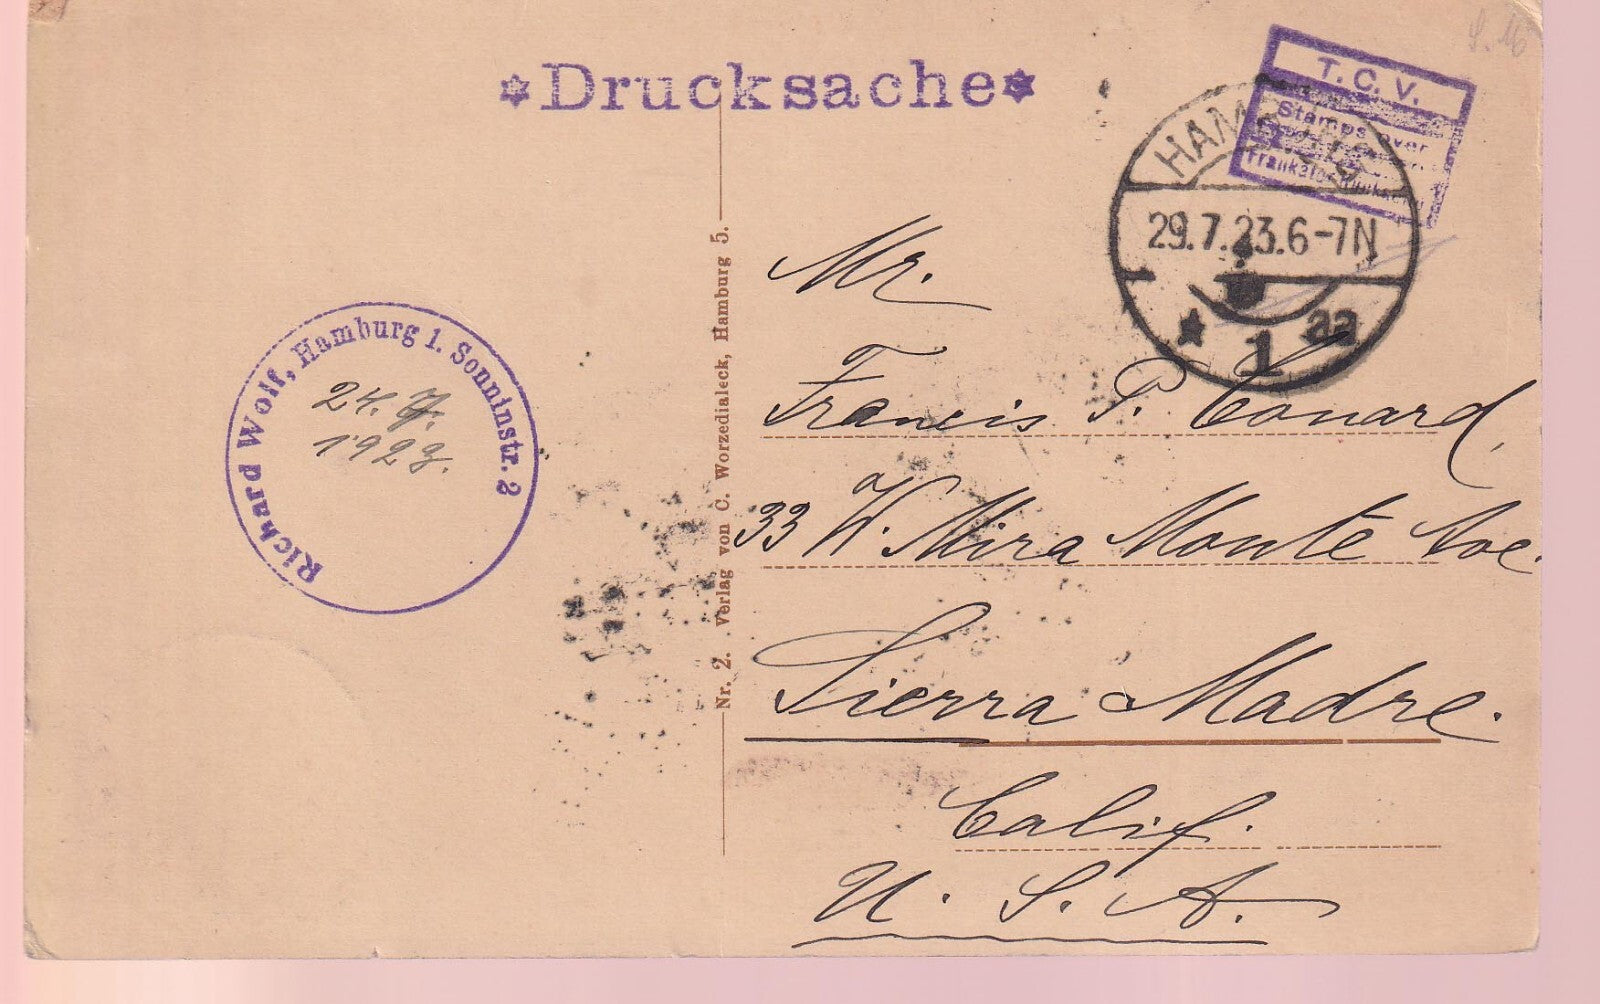 *Drucksache*
T. C. V.
Stamps over
HAMBURG
29.7.23.6-7N
1
* 1 aa
Richard Wolf, Hamburg 1. Sonninstr. 2
24. 7.
1923.
Nr. 2. Verlag von C. Worzedialeck, Hamburg 5.
Mr.
Francis P. Conard,
33 W. Mira Monte Ave.
Sierra Madre.
Calif.
U. S. A.